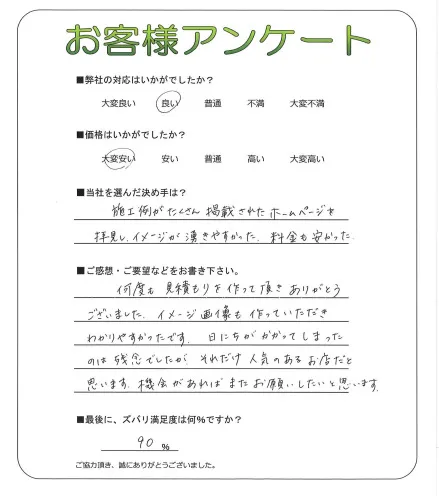 お客様アンケート
■弊社の対応はいかがでしたか？
大変良い 良い 普通 不満 大変不満
■価格はいかがでしたか？
大変安い 安い 普通 高い 大変高い
■当社を選んだ決め手は？
施工例がたくさん掲載されたホームページを
拝見し、イメージが湧きやすかった。料金も安かった
■ご感想・ご要望などをお書き下さい。
何度も見積もりを作って頂きありがとう
ございました。イメージ画像も作っていただき
わかりやすかったです。日にちがかかってしまった
のは残念でしたが、それだけ人気のあるお店だと
思います。機会があればまたお願いしたいと思います。
■最後に、ズバリ満足度は何%ですか？
90 %
ご協力頂き、誠にありがとうございました。